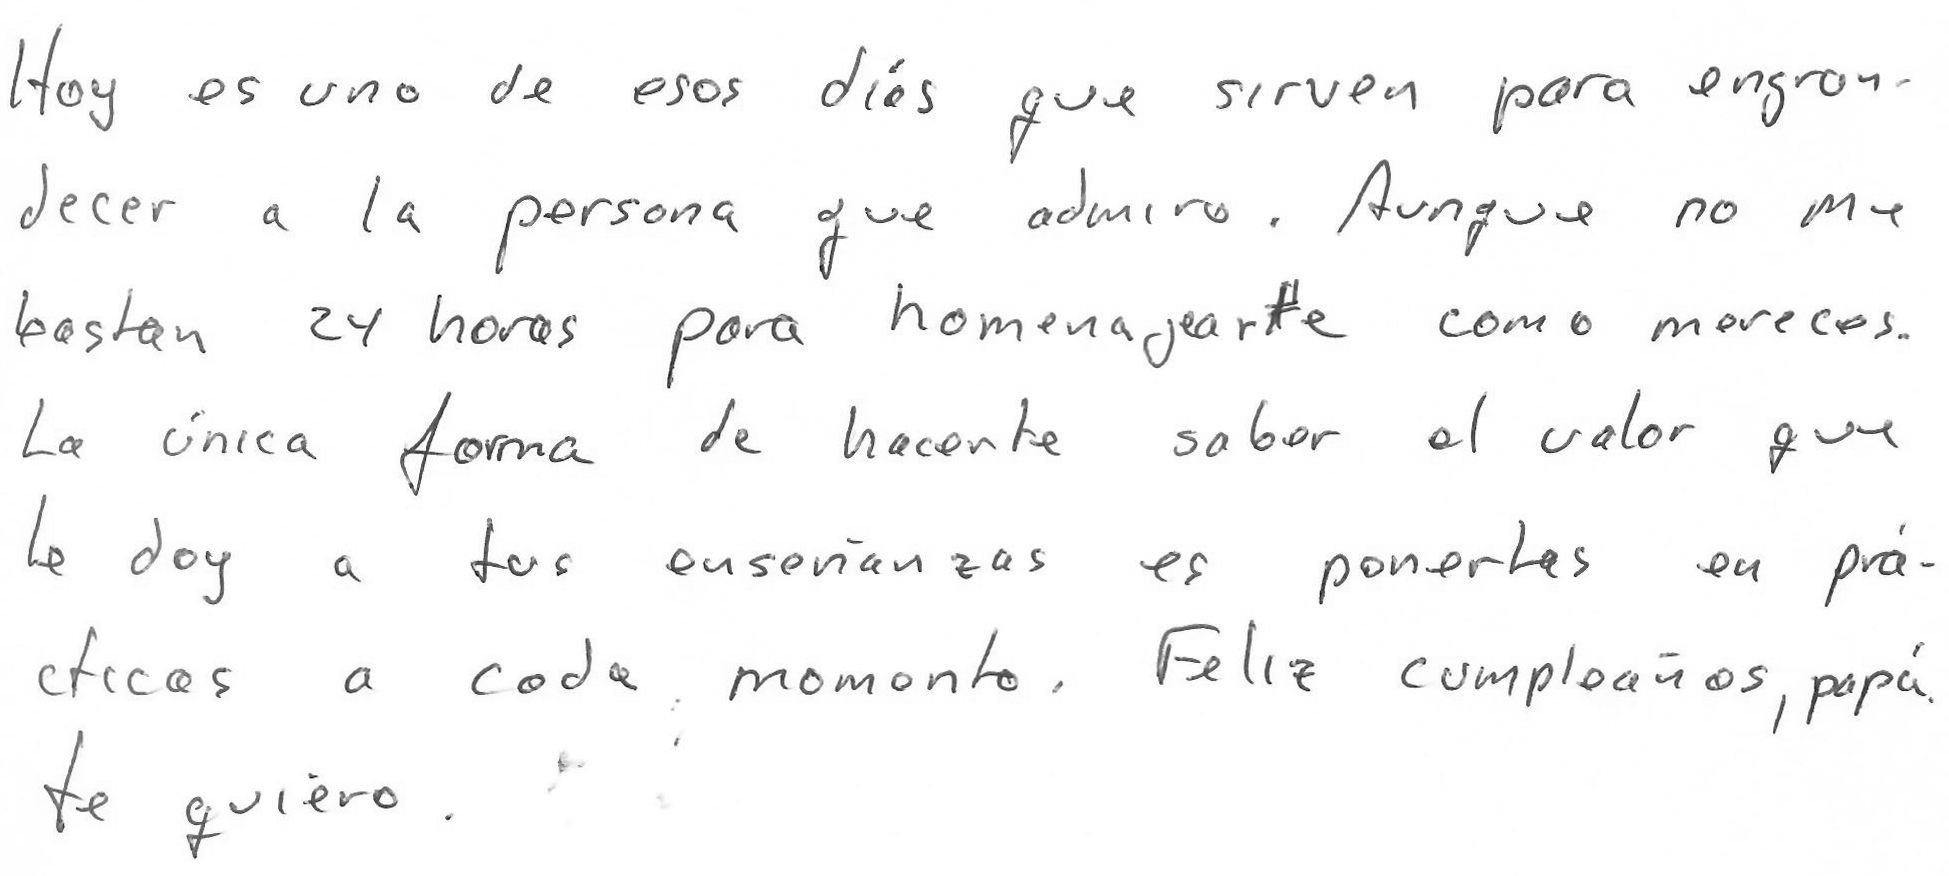 Hoy es uno de esos días que sirven para engran-
decer a la persona que admiro. Aunque no me
bastan 24 horas para homenajearte como mereces.
La única forma de hacerte saber el valor que
le doy a tus enseñanzas es ponerlas en prá-
cticas a cada momento. Feliz cumpleaños, papá.
te quiero.